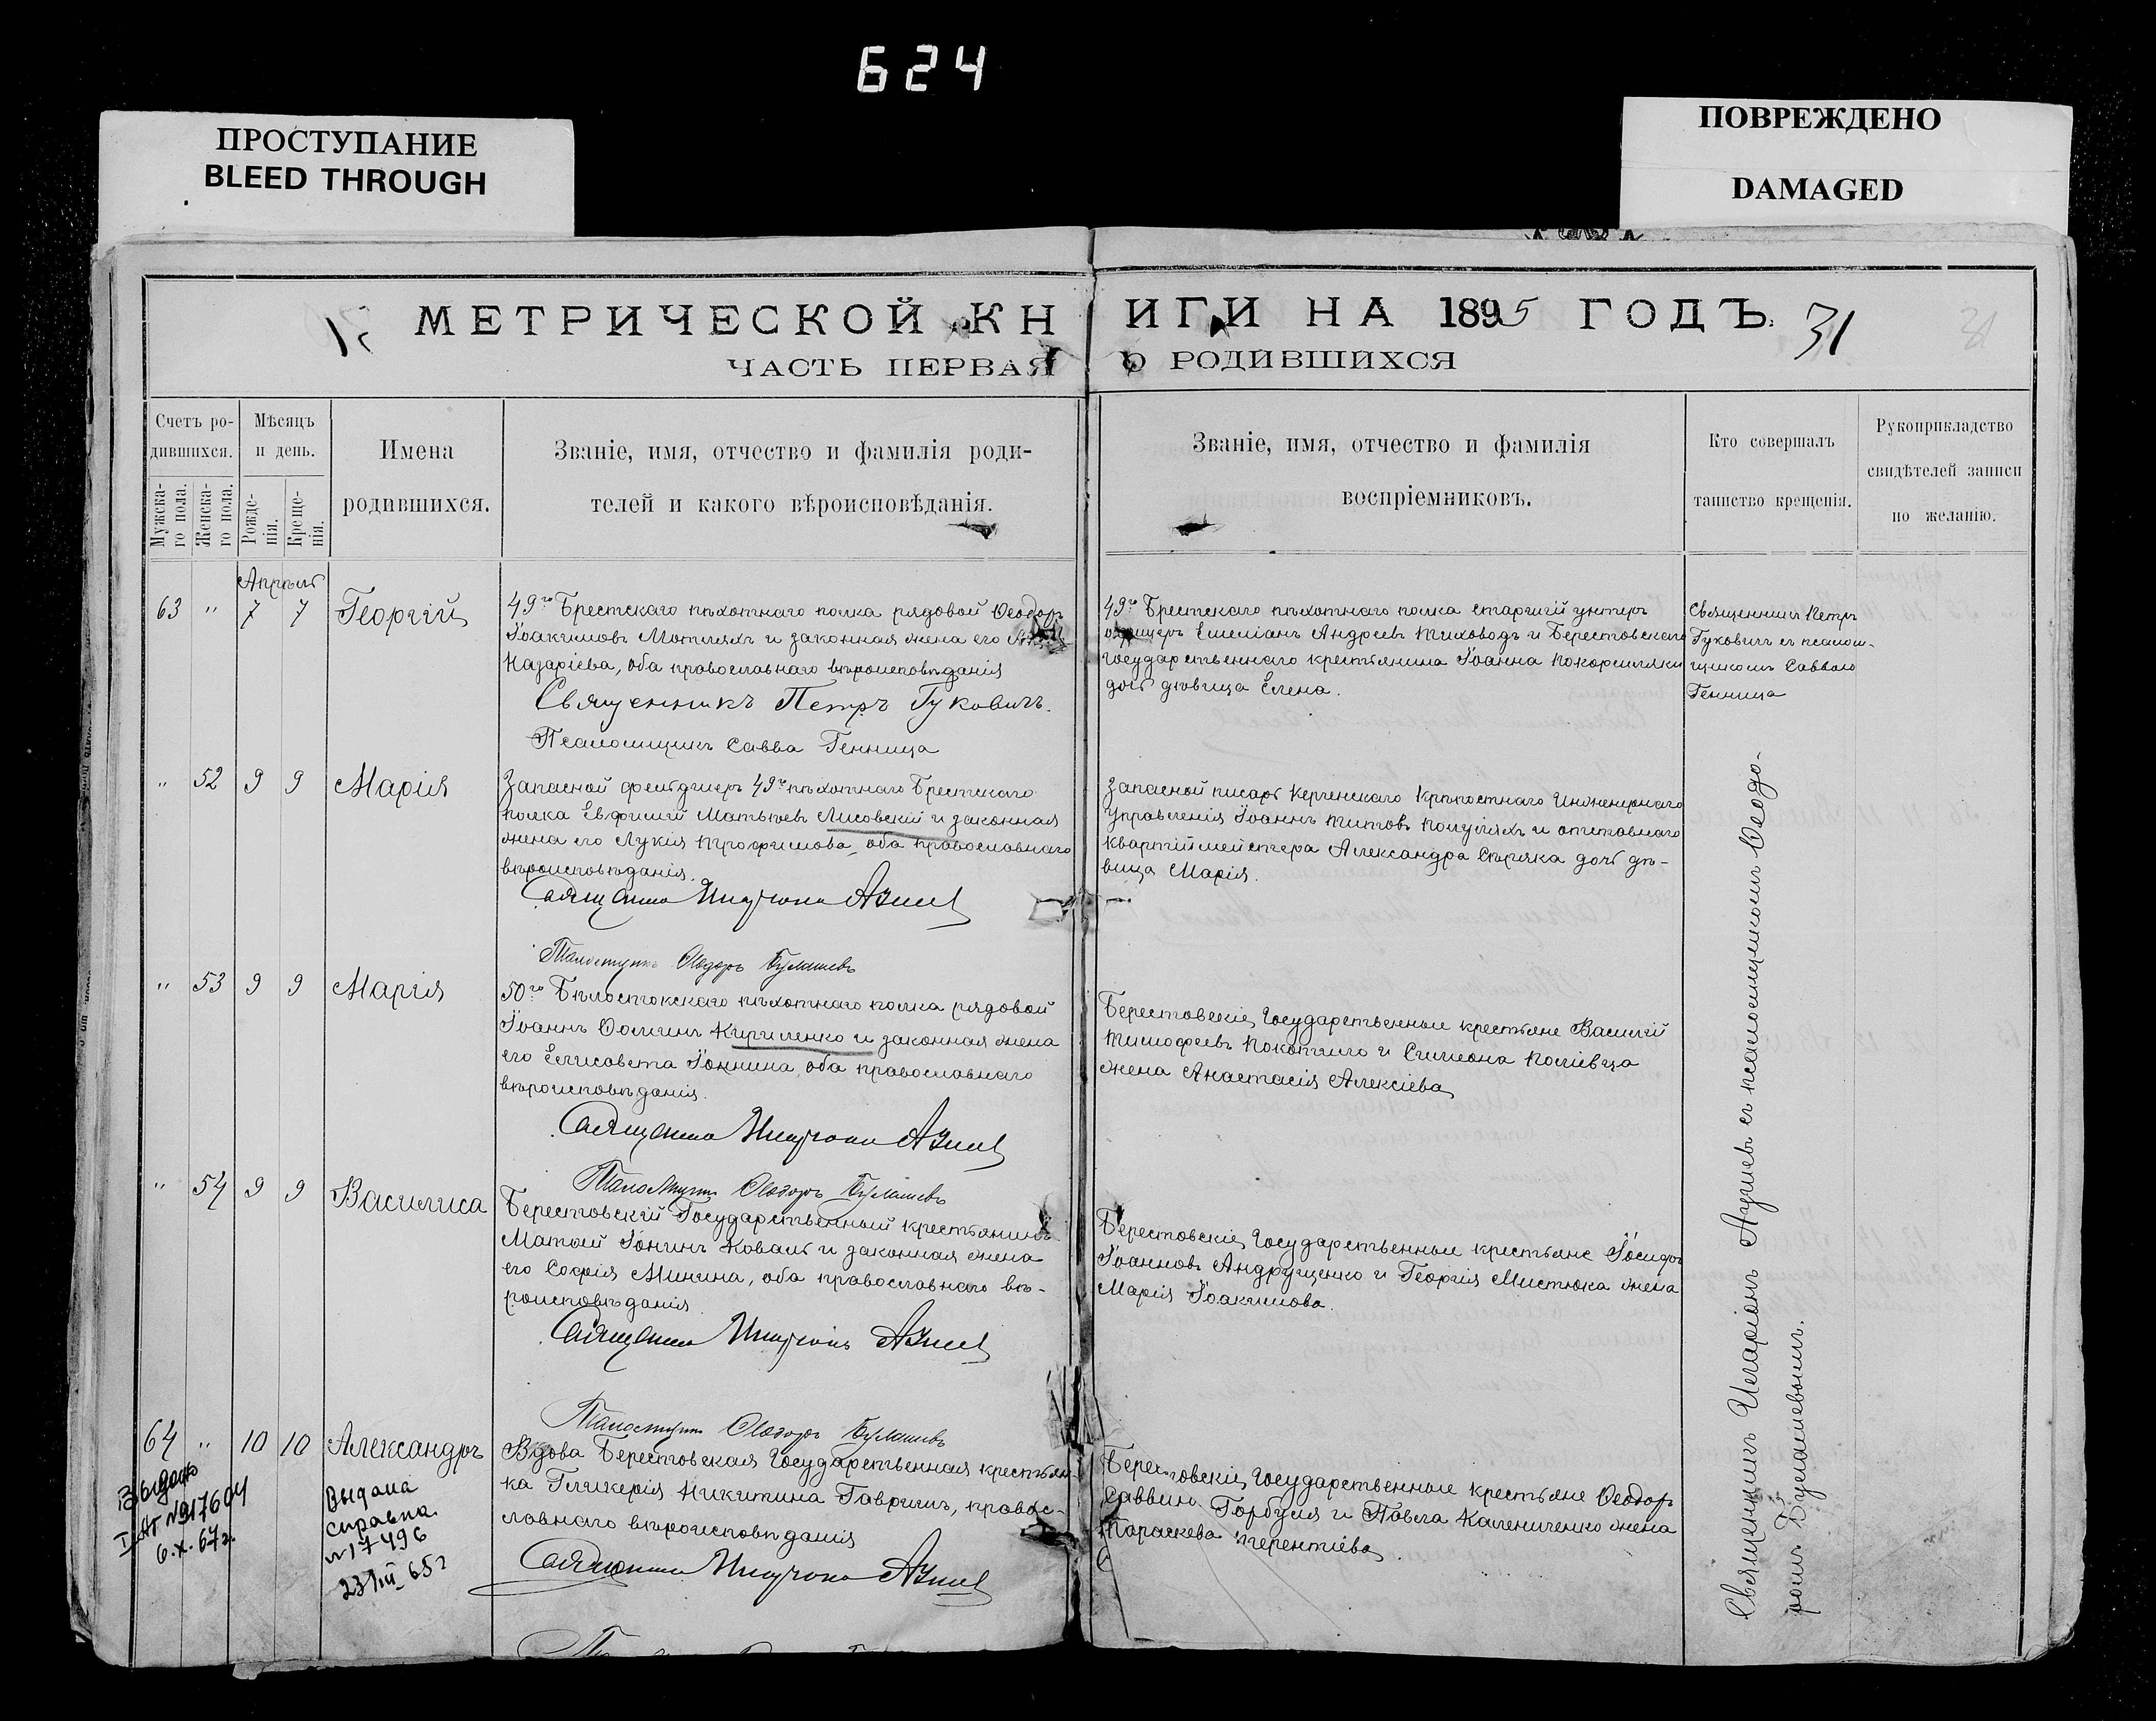 624
ПРОСТУПАНИЕ
BLEED THROUGH
ПОВРЕЖДЕНО
DAMAGED
МЕТРИЧЕСКОЙ КНИГИ НА 1895 ГОДЪ.
31
ЧАСТЬ ПЕРВАЯ О РОДИВШИХСЯ
Счетъ ро-
дившихся.
Мужска-
го пола.
Женска-
го пола.
Мѣсяцъ
и день.
Рожде-
нія.
Креще-
нія.
Имена
родившихся.
Званіе, имя, отчество и фамилія роди-
телей и какого вѣроисповѣданія.
Званіе, имя, отчество и фамилія
воспріемниковъ.
Кто совершалъ
таинство крещенія.
Рукоприкладство
свидѣтелей записи
по желанію.
Апрѣль
63 " 7 7 Георгій
49го Брестскаго пѣхотнаго полка рядовой Ѳеодоръ
Іоакимовъ и законная жена его
Назаріева, оба православнаго вѣроисповѣданія
Священникъ Петръ Гуковичъ.
Псаломщикъ Савва Генница
49го Брестскаго пѣхотнаго полка старшій унтеръ
офицеръ Емеліанъ Андреевъ Тиховодъ и Берестовскаго
государственнаго крестьянина Іоанна
дочь дѣвица Елена.
Священникъ Петръ
Гуковичъ съ псалом-
щикомъ Саввою
Генница
" 52 9 9 Марія
Запасной фельдшеръ 49го пѣхотнаго Брестскаго
полка Евфимій Матвѣевъ Лисовскій и законная
жена его Лукія Трофимова, оба православнаго
вѣроисповѣданія.
Псаломщикъ Ѳеодоръ Булашевъ
Запасной писарь Керченскаго Крѣпостнаго Инженернаго
Управленія Іоаннъ Титовъ и отставнаго
квартіймейстера Александра Сѣряка дочь дѣ-
вица Марія.
" 53 9 9 Марія
50го Бѣлостокскаго пѣхотнаго полка рядовой
Іоаннъ Ѳоминъ Кириленко и законная жена
его Елисавета Іоннина, оба православнаго
вѣроисповѣданія.
Псаломщикъ Ѳеодоръ Булашевъ
Берестовскіе Государственные крестьяне Василій
Тимофеевъ Покотило и Симеона Поліевца
жена Анастасія Алексіева
" 54 9 9 Василиса
Берестовскій Государственный крестьянинъ
Матѳій Іонинъ Коваль и законная жена
его Софія Минина, оба православнаго вѣ-
роисповѣданія
Псаломщикъ Ѳеодоръ Булашевъ
Берестовскіе Государственные крестьяне Іосифъ
Іоанновъ Андрущенко и Георгія Мистюка жена
Марія Іоакимова.
64 " 10 10 Александръ
Вдова Берестовская Государственная крестьян-
ка Гликерія Никитина Гавришъ, правос-
лавнаго вѣроисповѣданія
Берестовскіе Государственные крестьяне Ѳеодоръ
Саввин Горбуля и Павла Калениченко жена
Параскева Терентіева.
Священникъ Иларіонъ съ псаломщикомъ Ѳеодо-
ромъ Булашевымъ.
Выдано
№217604
6.X.67г.
Выдана
справка
№17496
23/III 65г